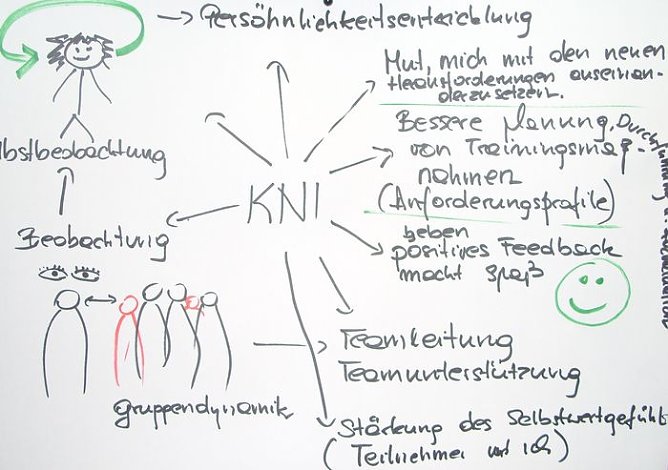 → Persöhnlichkeitsentwicklung
Mut, mich mit den neuen
Herausforderungen auseinan-
derzusetzen.
Bessere Planung, Durchführung
von Trainingsmaß-
nahmen
(Anforderungsprofile)
lbstbeobachtung
KNI
Beobachtung
geben
positives Feedback
macht Spaß
Teamleitung
Teamunterstützung
gruppendynamik
Stärkung des Selbstwertgefühl
(Teilnehmer und ich)